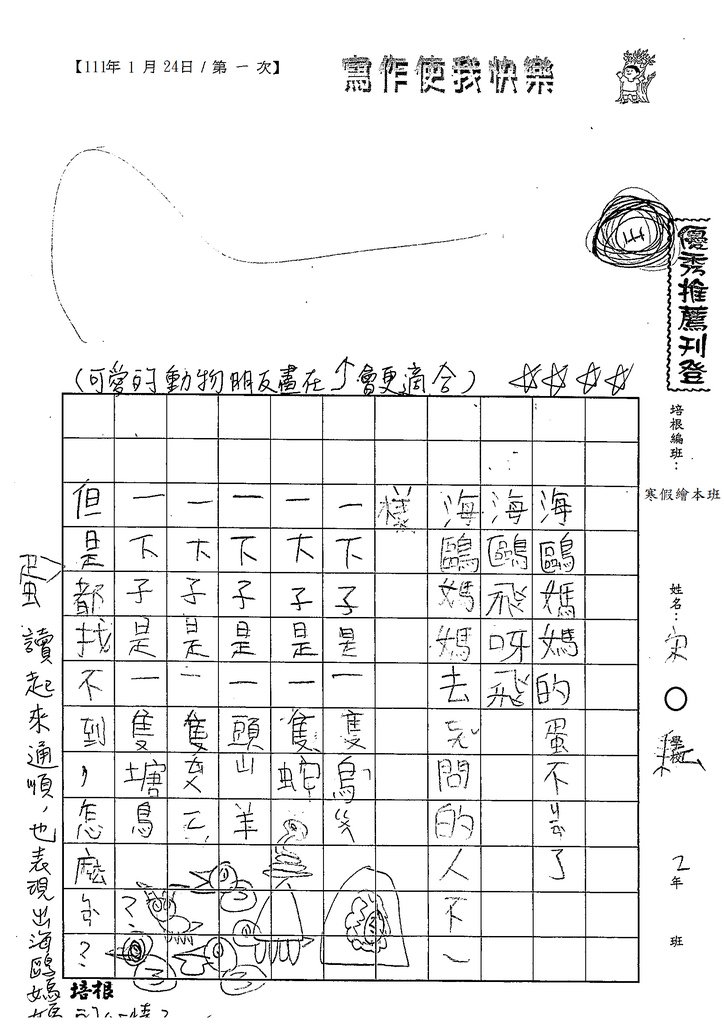 【111年1月24日/第一次】
寫作使我快樂
優秀推薦刊登
培根編班：
寒假繪本班
姓名：
宋○
2年 班
(可愛的動物朋友畫在↑會更適合) ☆☆☆☆
海鷗媽媽的蛋不去了
海鷗飛呀飛
海鷗媽媽去 問的人不一
樣
一下子是一隻鳥
一下子是一隻蛇
一下子是一頭山羊
一下子是一隻
一下子是一隻塘鳥？
但是都找不到，怎麼 ？
讀起來通順，也表現出海鷗媽
媽
培根